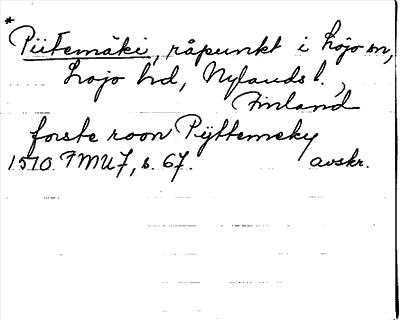 *
Piitemäki, råpunkt i Lojo sn,
Lojo hd, Nylands l.,
Finland
forste roon Pÿttemeky
1510 FMU 7, s. 67. avskr.